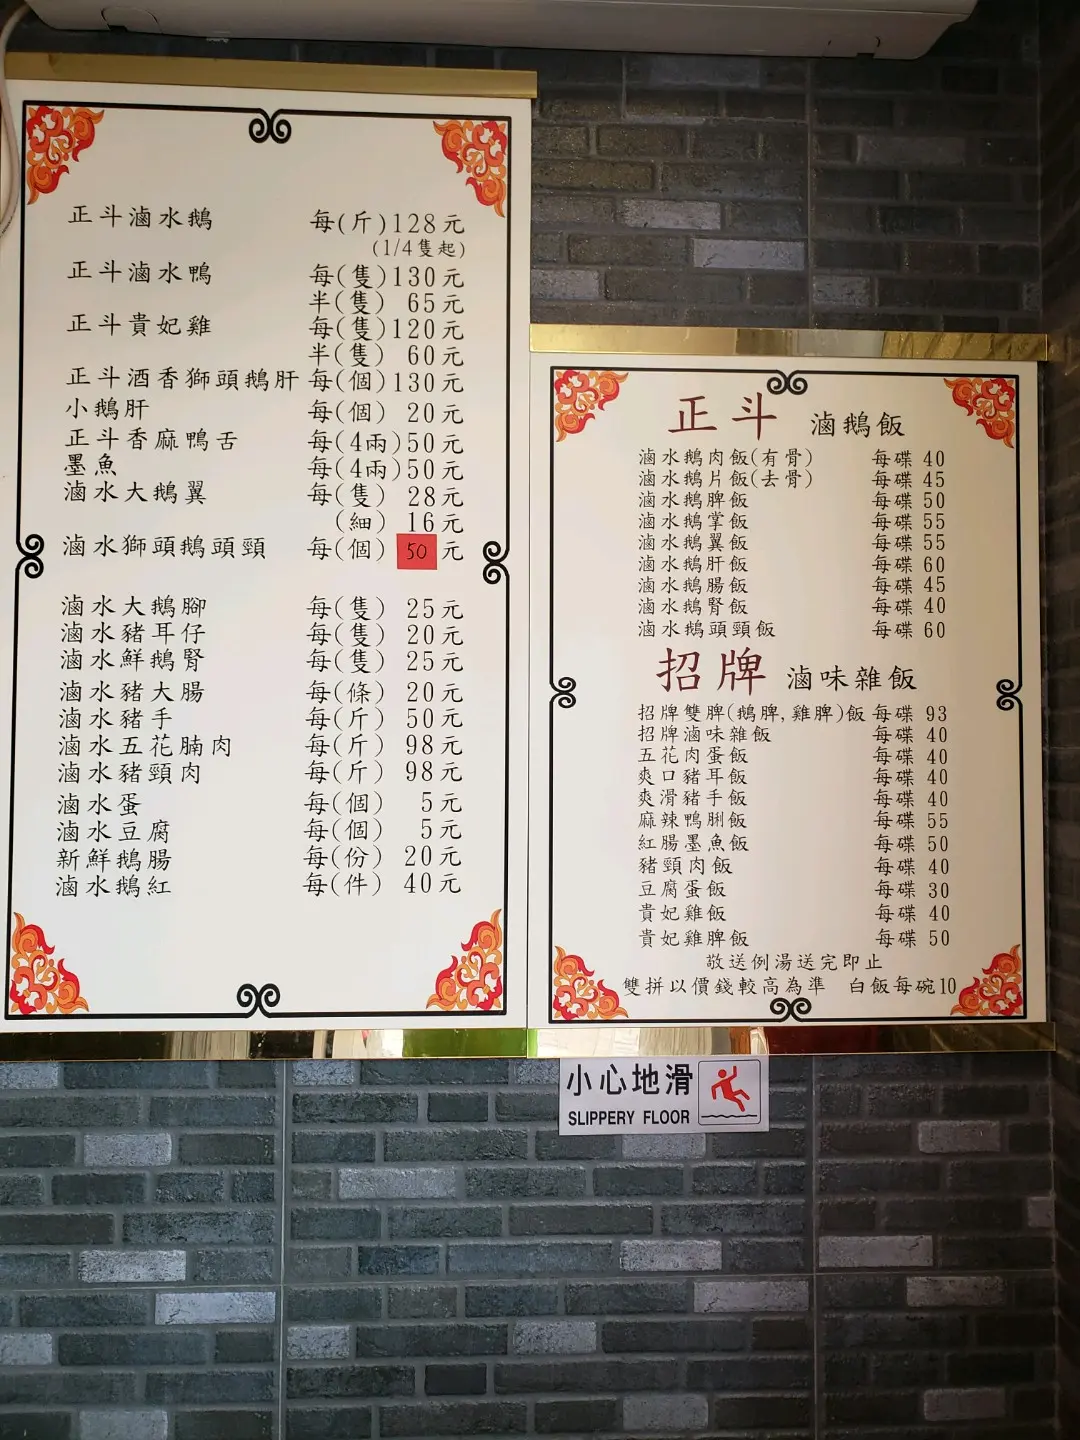 正斗滷水鵝 每(斤)128元
(1/4隻起)
正斗滷水鴨 每(隻)130元
半(隻) 65元
正斗貴妃雞 每(隻)120元
半(隻) 60元
正斗酒香獅頭鵝肝 每(個)130元
小鵝肝 每(個) 20元
正斗香麻鴨舌 每(4兩)50元
墨魚 每(4兩)50元
滷水大鵝翼 每(隻) 28元
(細) 16元
滷水獅頭鵝頭頸 每(個) 50元
滷水大鵝腳 每(隻) 25元
滷水豬耳仔 每(隻) 20元
滷水鮮鵝腎 每(隻) 25元
滷水豬大腸 每(條) 20元
滷水豬手 每(斤) 50元
滷水五花腩肉 每(斤) 98元
滷水豬頸肉 每(斤) 98元
滷水蛋 每(個) 5元
滷水豆腐 每(個) 5元
新鮮鵝腸 每(份) 20元
滷水鵝紅 每(件) 40元
正斗 滷鵝飯
滷水鵝肉飯(有骨) 每碟 40
滷水鵝片飯(去骨) 每碟 45
滷水鵝脾飯 每碟 50
滷水鵝掌飯 每碟 55
滷水鵝翼飯 每碟 55
滷水鵝肝飯 每碟 60
滷水鵝腸飯 每碟 45
滷水鵝腎飯 每碟 40
滷水鵝頭頸飯 每碟 60
招牌 滷味雜飯
招牌雙脾(鵝脾,雞脾)飯 每碟 93
招牌滷味雜飯 每碟 40
五花肉蛋飯 每碟 40
爽口豬耳飯 每碟 40
爽滑豬手飯 每碟 40
麻辣鴨脷飯 每碟 55
紅腸墨魚飯 每碟 50
豬頸肉飯 每碟 40
豆腐蛋飯 每碟 30
貴妃雞飯 每碟 40
貴妃雞脾飯 每碟 50
敬送例湯送完即止
雙拼以價錢較高為準 白飯每碗10
小心地滑
SLIPPERY FLOOR